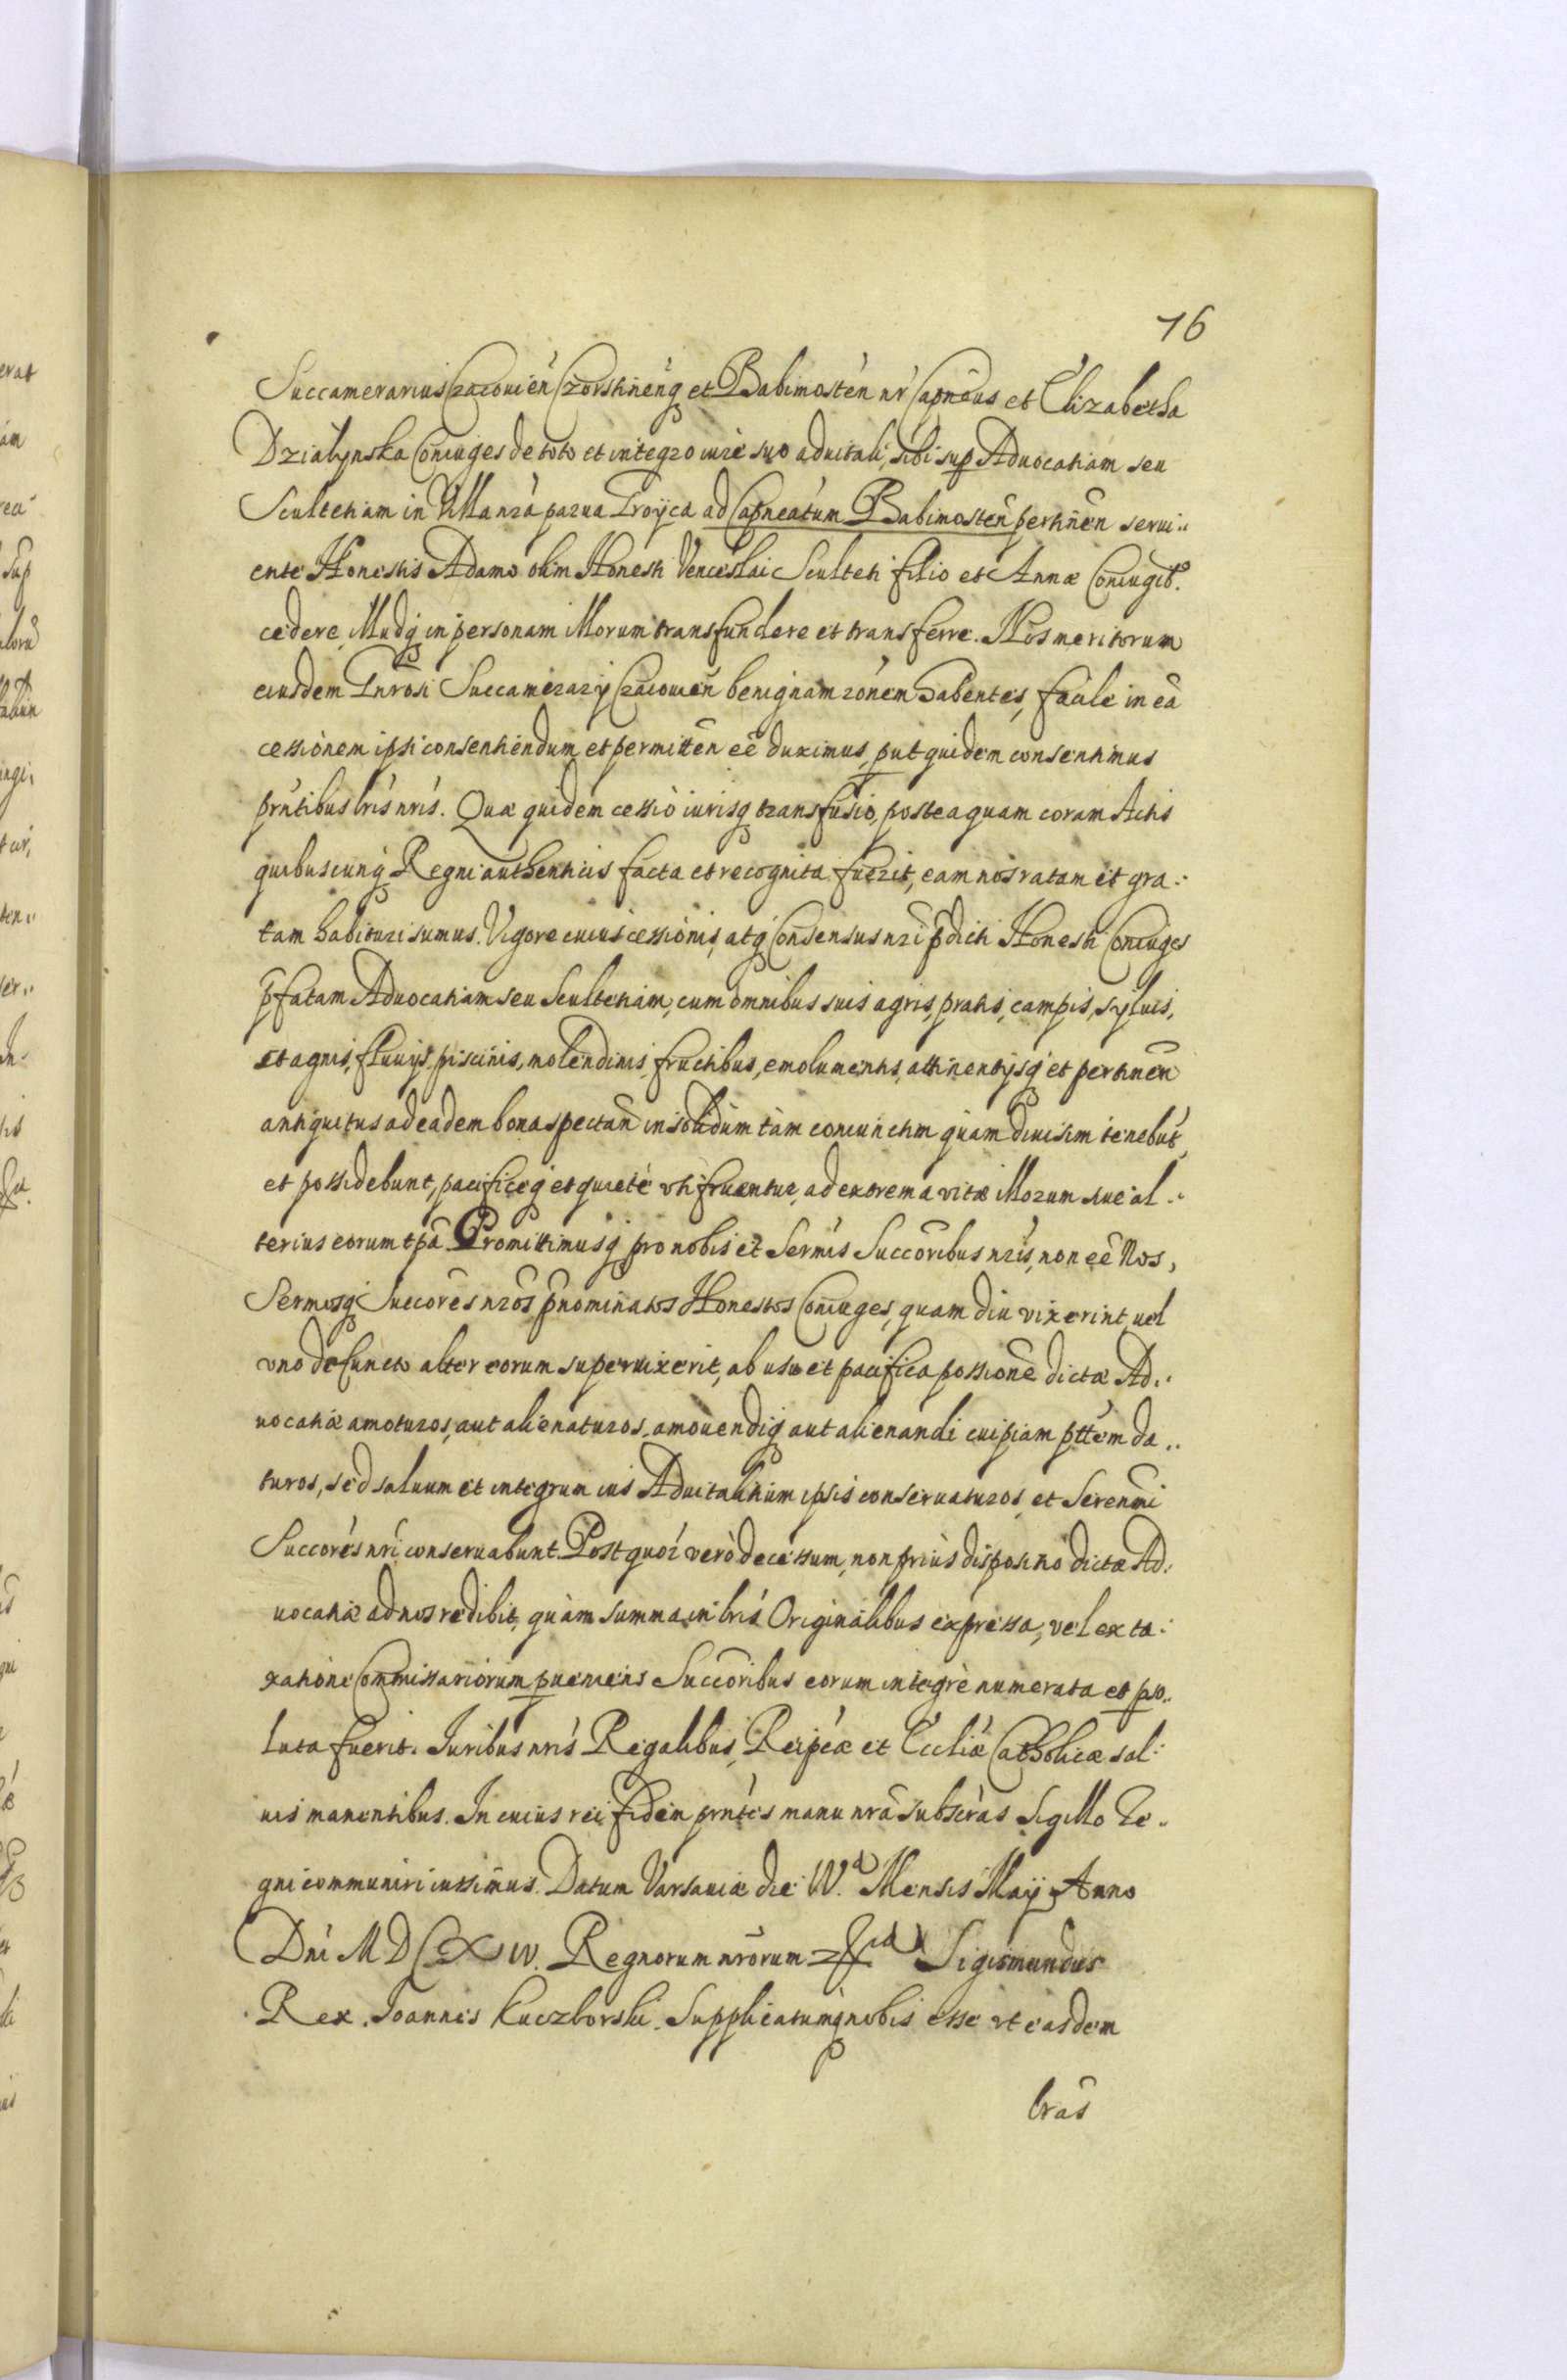 16
Succamerarius Cracouien̄ Czorstinen̄q̨ et Babimosten̄ nr̄ Capnēus et Elizabetha
Dzialynska Coniuges de toto et integro iure suo aduitali, sibi sup Aduocatiam seu
Scultetiam in Villa nrā parua Troyca ad Capneātum Babimosten̄ pertinēn serui„
ente Honestis Adamo olim Honesti Venceslai Sculteti filio et Annæ Coniugib⁹.
cedere, Illudq̨ in personam Illorum transfundere et transferre. Nos meritorum
eiusdem Gnrosi Succamerarÿ Cracouien̄ benignam rōnem habentes, facile in eā
cessionem ipsi consentiendum et permitten̄ eē duximus, put quidem consentimus
prn̄tibus lrīs nrīs. Quæ quidem cessio iurisq̨ transfusio, posteaquam coram Actis
quibuscunq̨ Regni authenticis facta et recognita fuerit, eam nos ratam et gra„
tam habituri sumus. Vigore cuius cessionis, atq̨ Consensus nrī p̄dicti Honesti Coniuges
p̄fatam Aduocatiam seu Scultetiam, cum omnibus suis agris, pratis, campis, syluis,
stagnis, fluuijs, piscinis, molendinis, fructibus, emolumentis, attinentijsq̨ et pertinēn
antiquitus ad eadem bona spectan̄ in solidum tàm coniunctim quam diuisim tenebūt,
et possidebunt, pacificeq̨ et quietè vti fruentur, ad extrema vitæ Illorum siue al„
terius eorum tpā. Promittimusq̨ pro nobis et Sermīs Succoribus nrīs, non eē Nos,
Sermosq̨ Succores nrōs p̄nominatos Honestos Coniuges, quam diu vixerint, uel
vno defuncto alter eorum superuixerit, ab usu et pacifica possione dictæ Ad„
uocatiæ amoturos, aut alienaturos, amouendiq̨ aut alienandi cuipiam pttēm da„
turos, sed saluum et integrum ius Aduitalitium ipsis conseruaturos, et Serenm̄i
Succorēs nrī conseruabunt. Post quor̄ verò decessum, non priùs dispositio dictæ Ad„
uocatiæ ad nos redibit, quàm summa in lrīs Originalibus expressa, vel ex ta„
xatione Commissariorum pueniens Succoribus eorum integrè numerata et pso„
luta fuerit. Iuribus nrīs Regalibus, Reipcæ et Eccliæ Catholicæ sal„
uis manentibus. In cuius rei fidem prn̄tes manu nrā subscras Sigillo Re„
gni communiri iussimus. Datum Varsauiæ die IV.ᵃ Mensis Maÿ Anno
Dnī MDC IV. Regnorum nrōrum Sigismundus
Rex. Joannes Kuczborski. Supplicatumq̨ nobis esse vt easdem
lrās